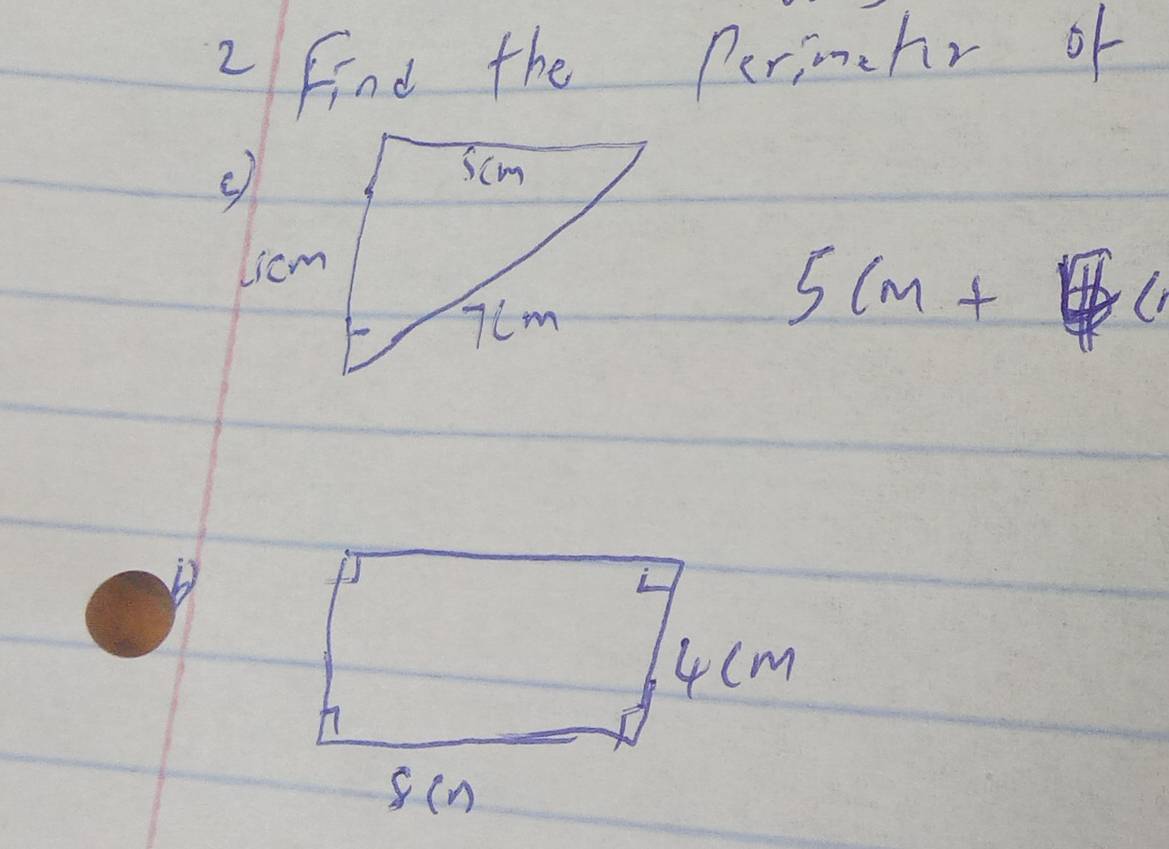 2 Find the Perimeter of
5cm
7cm
5cm +
b)
4cm
8cm